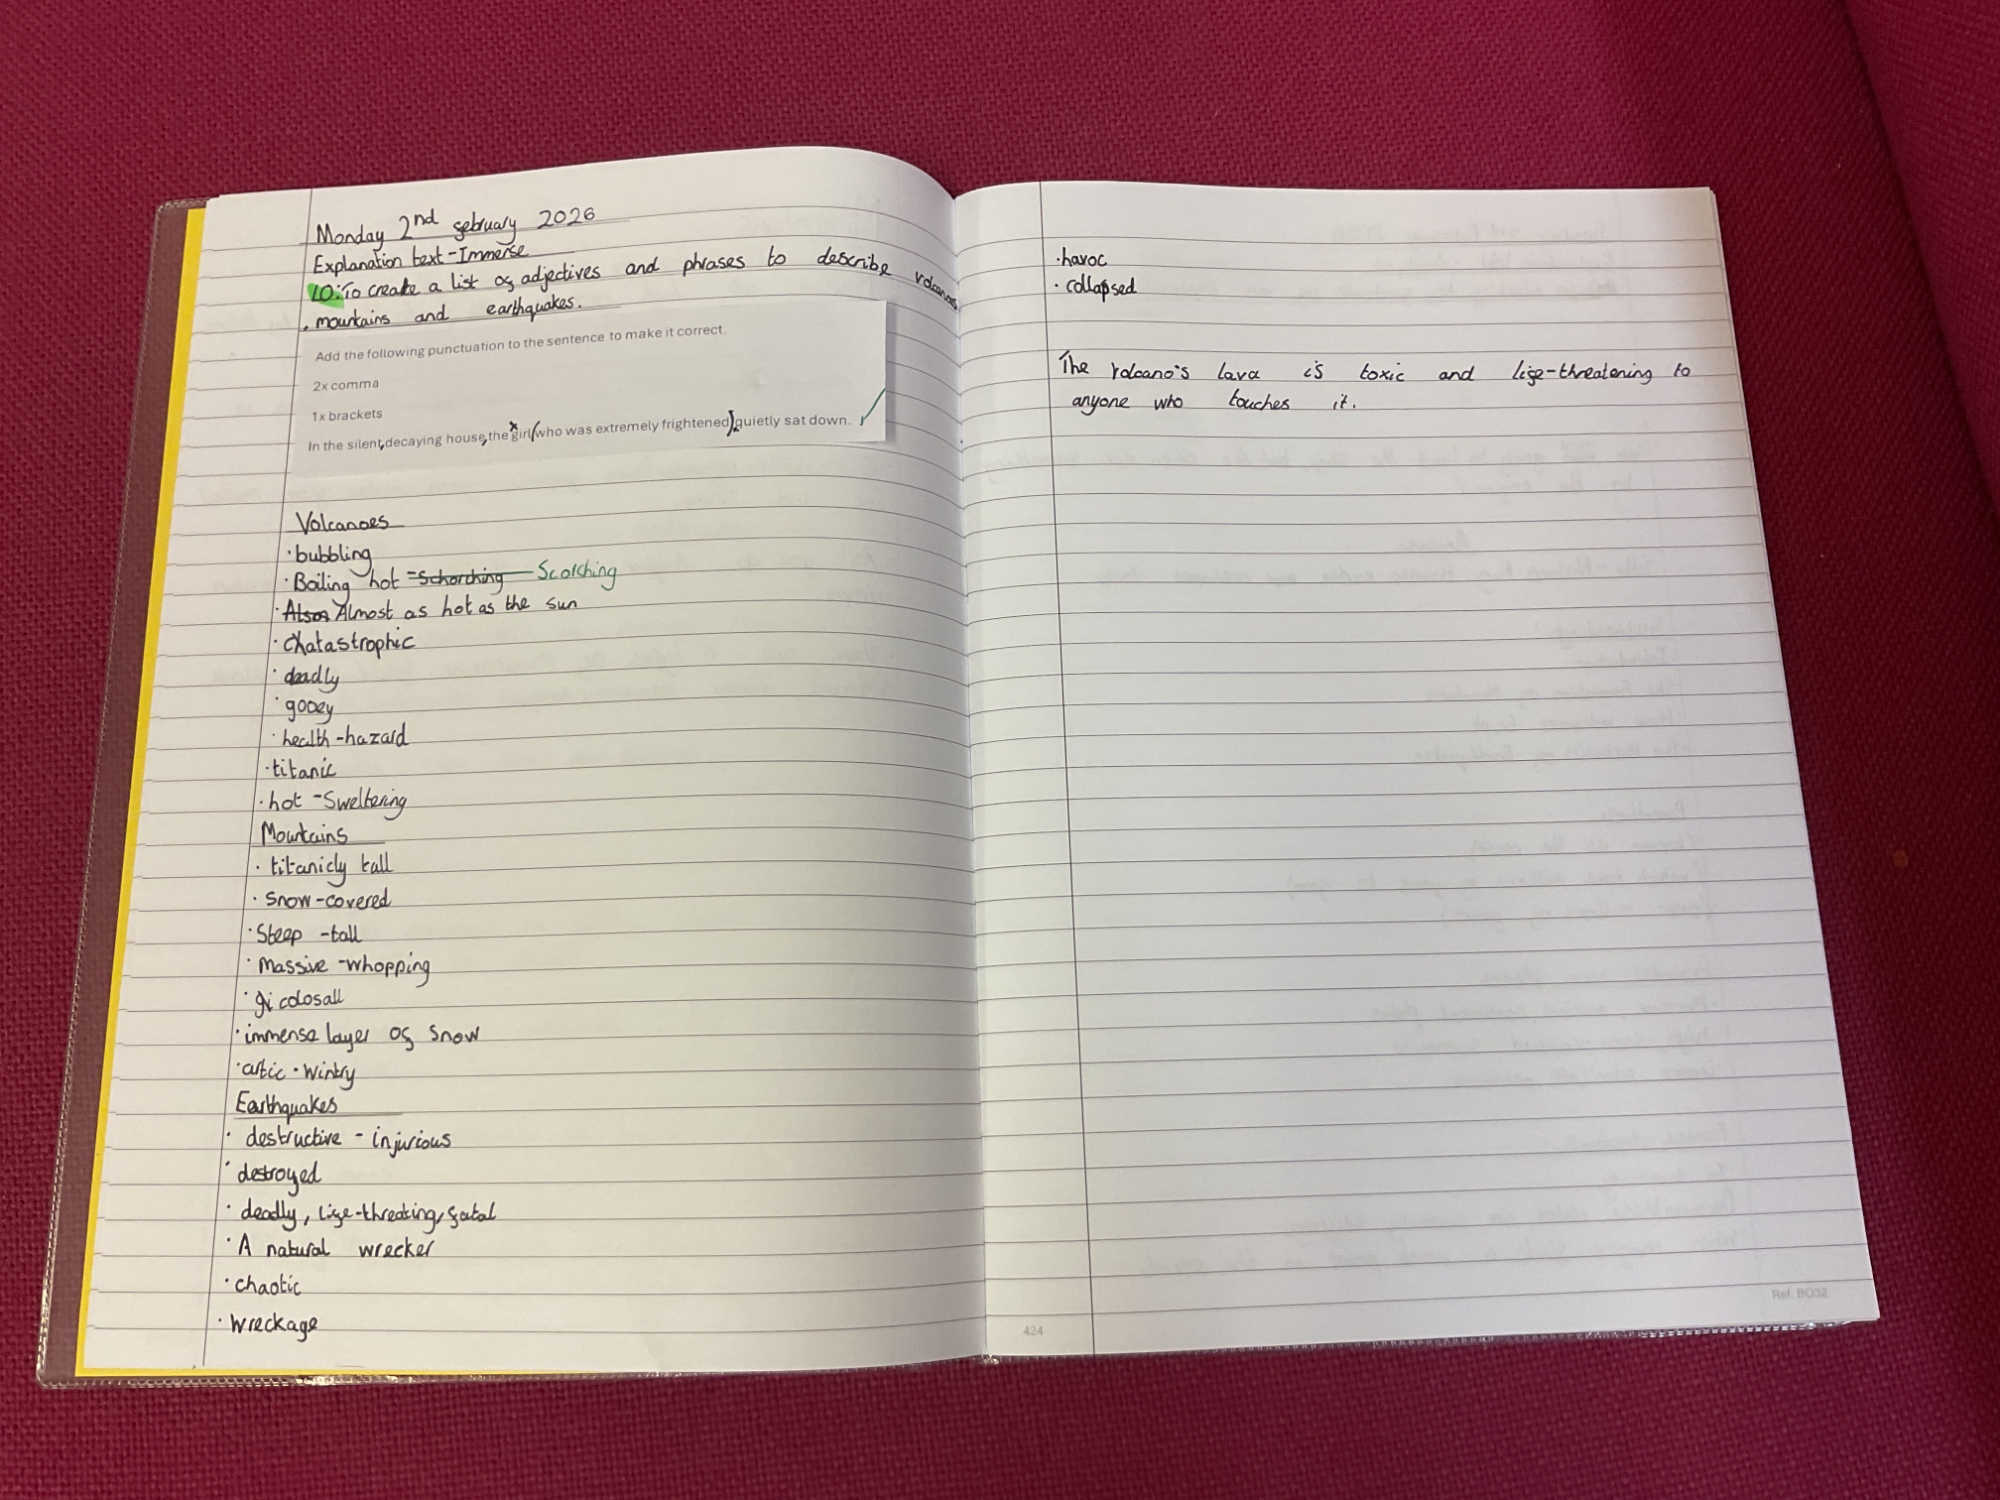 Monday 2nd february 2026
Explanation text-Immerse
LO: To create a list of adjectives and phrases to describe volcanoes
, mountains and earthquakes.
Add the following punctuation to the sentence to make it correct.
2x comma
1x brackets
In the silent, decaying house, the girl (who was extremely frightened), quietly sat down.
Volcanoes
· bubbling
· Boiling hot - Schorching Scorching
· Alsos Almost as hot as the sun
· Chatastrophic
· deadly
· gooey
· health-hazard
· titanic
· hot - Sweltering
Mountains
· titanicly tall
· snow-covered
· Steep - tall
· Massive - whopping
· gi colosall
· immense layer of snow
· artic · wintry
Earthquakes
· destructive - injurious
· destroyed
· deadly, life-threating, fatal
· A natural wrecker
· chaotic
· wreckage
· havoc
· collapsed
The volcano's lava is toxic and life-threatening to
anyone who touches it.
424
Ref. BO32